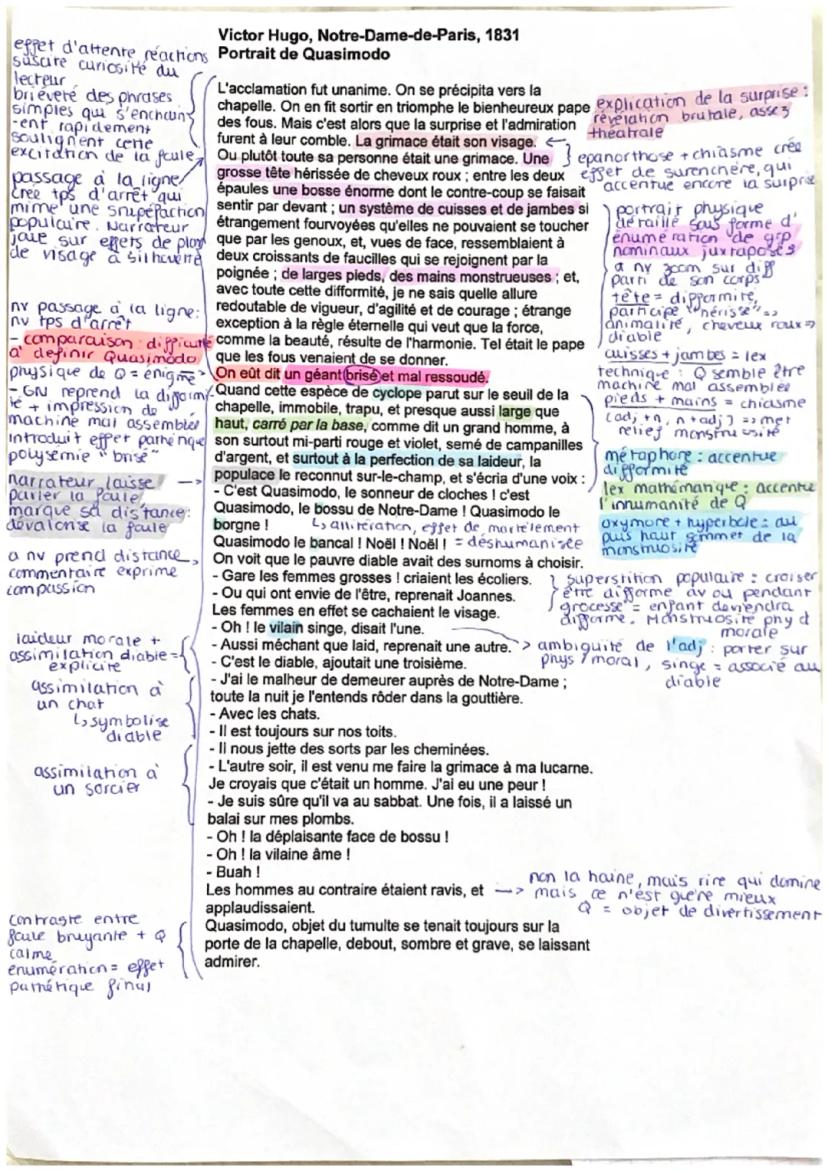 Victor Hugo, Notre-Dame-de-Paris, 1831
Portrait de Quasimodo
effet d'attente réactions
suscite curiosité du
lecteur
brièveté des phrases
simples qui s'enchain
-ent rapidement
soulignent cette
excitation de la foule
passage à la ligne
crée tps d'arrêt qui
mime une stupéfaction
populaire. Narrateur
joue sur effets de plan
de visage à silhouette
nv passage à la ligne:
nv tps d'arrêt
- comparaison : difficulté
à définir Quasimodo
physique de Q = énigme
- GN reprend la difformi
té + impression de
machine mal assemblée
introduit effet pathétique
polysémie "brisé"
narrateur laisse
parler la foule
marque sa distance:
dévalorise la foule
a nv prend distance
commentaire exprime
compassion
laideur morale +
assimilation diable =
explicite
assimilation à
un chat
↳ symbolise
diable
assimilation à
un sorcier
contraste entre
foule bruyante + Q
calme
énumération = effet
pathétique final
L'acclamation fut unanime. On se précipita vers la
chapelle. On en fit sortir en triomphe le bienheureux pape
des fous. Mais c'est alors que la surprise et l'admiration
furent à leur comble. La grimace était son visage.
Ou plutôt toute sa personne était une grimace. Une
grosse tête hérissée de cheveux roux ; entre les deux
épaules une bosse énorme dont le contre-coup se faisait
sentir par devant ; un système de cuisses et de jambes si
étrangement fourvoyées qu'elles ne pouvaient se toucher
que par les genoux, et, vues de face, ressemblaient à
deux croissants de faucilles qui se rejoignent par la
poignée ; de larges pieds, des mains monstrueuses ; et,
avec toute cette difformité, je ne sais quelle allure
redoutable de vigueur, d'agilité et de courage ; étrange
exception à la règle éternelle qui veut que la force,
comme la beauté, résulte de l'harmonie. Tel était le pape
que les fous venaient de se donner.
On eût dit un géant brisé et mal ressoudé.
Quand cette espèce de cyclope parut sur le seuil de la
chapelle, immobile, trapu, et presque aussi large que
haut, carré par la base, comme dit un grand homme, à
son surtout mi-parti rouge et violet, semé de campanilles
d'argent, et surtout à la perfection de sa laideur, la
populace le reconnut sur-le-champ, et s'écria d'une voix :
- C'est Quasimodo, le sonneur de cloches ! c'est
Quasimodo, le bossu de Notre-Dame ! Quasimodo le
borgne !
↳ allitération, effet de martèlement
Quasimodo le bancal ! Noël ! Noël !
= déshumanisée
On voit que le pauvre diable avait des surnoms à choisir.
- Gare les femmes grosses ! criaient les écoliers.
- Ou qui ont envie de l'être, reprenait Joannes.
Les femmes en effet se cachaient le visage.
- Oh ! le vilain singe, disait l'une.
- Aussi méchant que laid, reprenait une autre.
- C'est le diable, ajoutait une troisième.
- J'ai le malheur de demeurer auprès de Notre-Dame ;
toute la nuit je l'entends rôder dans la gouttière.
- Avec les chats.
- Il est toujours sur nos toits.
- Il nous jette des sorts par les cheminées.
- L'autre soir, il est venu me faire la grimace à ma lucarne.
Je croyais que c'était un homme. J'ai eu une peur !
- Je suis sûre qu'il va au sabbat. Une fois, il a laissé un
balai sur mes plombs.
- Oh ! la déplaisante face de bossu !
- Oh ! la vilaine âme !
- Buah !
Les hommes au contraire étaient ravis, et
applaudissaient.
Quasimodo, objet du tumulte se tenait toujours sur la
porte de la chapelle, debout, sombre et grave, se laissant
admirer.
explication de la surprise :
révélation brutale, assez
théâtrale
epanorthose + chiasme crée
effet de surenchère, qui
accentue encore la surprise
portrait physique
détaillé sous forme d'
énumération de grp
nominaux juxtaposés
a nv zoom sur diff
parti de son corps
tête = difformité,
participe "hérissé" =>
animalité, cheveux roux =>
diable
cuisses + jambes = lex
technique : Q semble être
machine mal assemblée
pieds + mains = chiasme
(adj + n, n + adj) => met
relief monstruosité
métaphore : accentue
difformité
lex mathématique : accentue
l'inhumanité de Q
oxymore + hyperbole : au
puis haut sommet de la
monstruosité
superstition populaire : croiser
être difforme av ou pendant
grocesse = enfant deviendra
difforme. Monstruosité phy et
morale
> ambiguïté de l'adj : porter sur
phys / moral, singe = associé au
diable
non la haine, mais rire qui domine
mais ce n'est guère mieux
Q = objet de divertissement